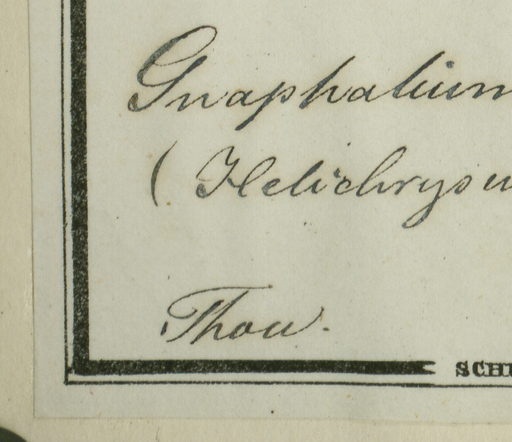 Gnaphalium
(Helichrysu
Thou.
SCHE